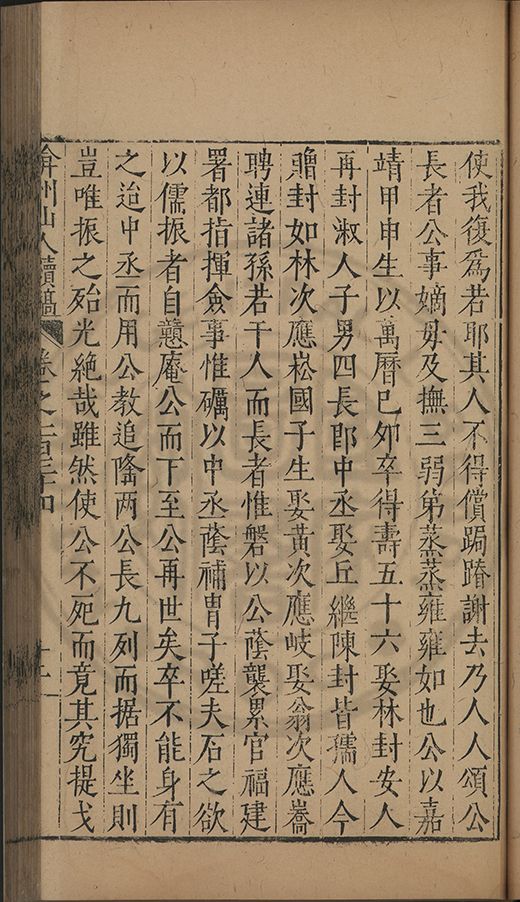 使我復爲若耶其人不得償跼蹐謝去乃人人頌公
長者公事嫡母及撫三弱弟蒸蒸雍雍如也公以嘉
靖甲申生以萬曆己夘卒得壽五十六娶林封安人
再封淑人子男四長卽中丞娶丘繼陳封皆孺人今
贈封如林次應崧國子生娶黃次應岐娶翁次應喬
聘連諸孫若干人而長者惟磐以公蔭襲累官福建
署都指揮僉事惟礪以中丞蔭補胄子嗟夫石之欲
以儒振者自戇庵公而下至公再世矣卒不能身有
之迨中丞而用公教追隂两公長九列而据獨坐則
豈唯振之殆光絶哉雖然使公不死而竟其究提戈
弇州山人續稿 卷之一百三十四 十一